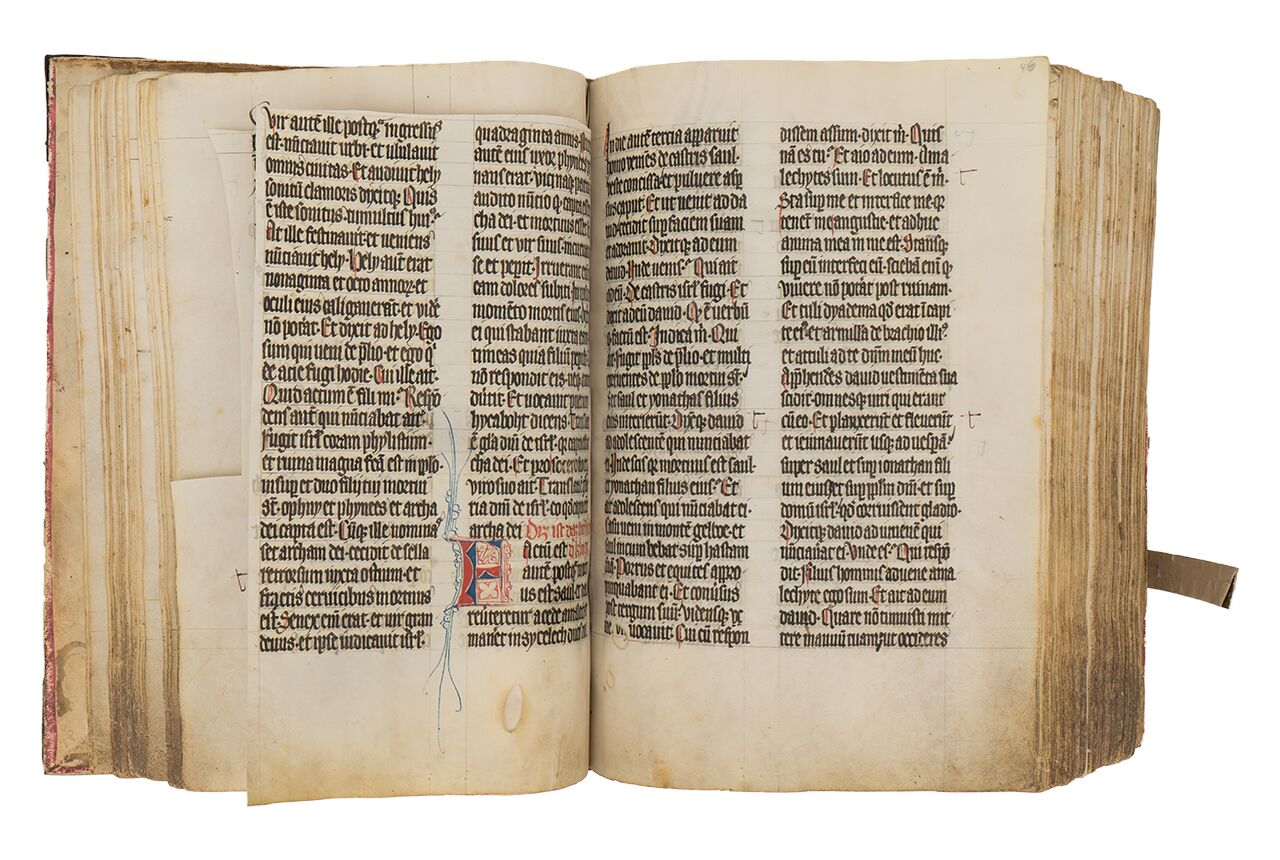 Vir autē ille postqᵃ ingressus
est·nūciauit urbi·et ululauit
omnis ciuitas·Et audiuit hely
sonitū clamoris dixitqꝫ·Quis
ē iste sonitus·tumultus huiꝰ·
At ille festinauit·et ueniens
nūciauit hely·Hely autē erat
nonaginta et octo annoꝝ·et
oculi eius caligauerāt·et uidē
nō potāt·Et dixit ad hely·Ego
sum qui ueni de p̄lio·et ego qͥ
de acie fugi hodie·Cui ille ait·
Quid actum ē fili mi·Respō
dens autē qui nūciabat ait·
Fugit isrl̄ coram phylistiim·
et ruina magna fcā est in pplo·
insup et duo filij tui mortui
st̄·ophny et phynees·et archa
dei capta est·Cūqꝫ ille nominaˢ
set archam dei·cecidit de sella
retrorsum iuxta ostium·et
fractis ceruicibus mortuus
est·Senex em̄ erat·et uir gran
deuus·et ipse iudicauit isrl̄·
quadraginta annis·
autē eius uxor phynees
nans erat·uicinaqꝫ
audito nūcio qꝫ capta
cha dei·et mortuus esset
suus et vir suus·
se et peperit·Irruerant
eam dolores subiti·
momēto mortis eius·
ei qui stabant iuxta eam
timeas quia filium
nō respondit eis·neqꝫ
duertit·Et uocauit puerum
hycaboht dicens·
ē gl̄a dn̄i de isrl̄·qꝫ capta
cha dei·Et pro
uiro suo ait·Translata
ria dn̄i de isrl̄·eo qd
archa dei
Actum est
autē postqᵃ
us est saul·et
reuerteret a cede
maneret in sycelech
46
In die autē tercia apparuit
homo ueniēs de castris saul·
ueste concissa·et puluere aspˢ
sus caput·Et ut uenit ad da
uid·cecidit sup faciem suam
et adorauit·Dixitqꝫ ad eum
dauid·Unde uenis·Qui ait
ad eū·De castris isrl̄ fugi·Et
dixit ad eū dauid·Qd ē uerbū
qd factum est·Indica m̄·Qui
ait·Fugit ppls de p̄lio·et multi
corruentes de pplo mortui st̄·
Set saul et yonathas filius
eius interierūt·Dixitqꝫ dauid
ad adolescentē qui nunciabat
ei·Unde scis qꝫ mortuus est saul·
et yonathan filius eius·Et
ait adolescens qui nūciabat ei·
Casu ueni in montē gelboe·et
saul incumbebat sup hastam
suā·Porro currus et equites appro
pinquabant ei·Et cōuersus
post tergum suū·vidensqꝫ me
uocauit·Cui cū respon
dissem assum·dixit m̄·Quis
nā es tu·Et aio ad eum·Ama
lechytes sum·Et locutus ē m̄·
Sta sup me et interfice me·qꝫ
tenent me angustie·et adhuc
anima mea in me est·Stansqꝫ
sup eū interfeci eū·sciebā em̄ qꝫ
viuere nō potāt post ruinam·
Et tuli dyadema qd erat ī capi
te eiꝰ·et armilla de brachio illiꝰ·
et attuli ad te dn̄m meū huc·
Apphendēs dauid uestimēta sua
scidit·omnesqꝫ uiri qui erant
cū eo·Et planxerūt et fleuerūt
et ieiunauerūt usqꝫ ad uespāˢ·
super saul et sup ionathan fili
um eius·et sup pplm dn̄i·et sup
domū isrl̄·qd corruissent gladio·
Dixitqꝫ dauid ad iuuenē qui
nūciauat ei·Unde es·Qui respō
dit·Filius hominis aduene ama
lechyte ego sum·Et ait ad eum
dauid·Quare nō timuisti mit
tere manum tuam·ut occideres